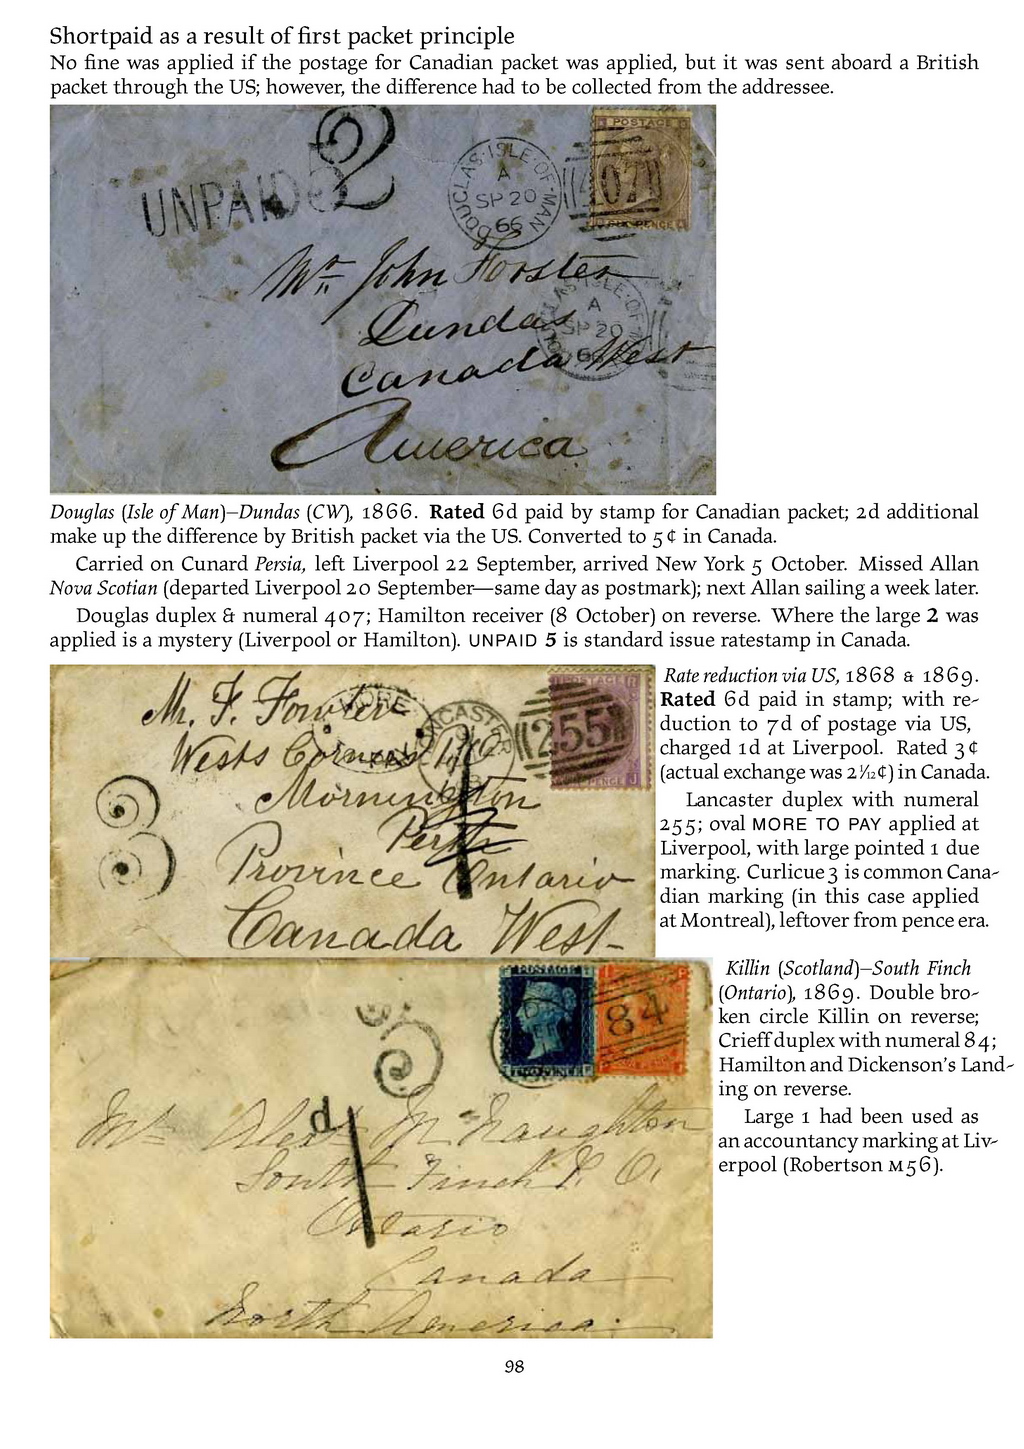 Shortpaid as a result of first packet principle
No fine was applied if the postage for Canadian packet was applied, but it was sent aboard a British
packet through the US; however, the difference had to be collected from the addressee.
UNPAID 5
2
DOUGLAS·ISLE·OF·MAN
A
SP 20
66
407
POSTAGE
SIX PENCE
Mr. John Forster
Dundas
Canada West
America
A
SP 20
66
Douglas (Isle of Man)–Dundas (CW), 1866. Rated 6d paid by stamp for Canadian packet; 2d additional
make up the difference by British packet via the US. Converted to 5¢ in Canada.
Carried on Cunard Persia, left Liverpool 22 September, arrived New York 5 October. Missed Allan
Nova Scotian (departed Liverpool 20 September—same day as postmark); next Allan sailing a week later.
Douglas duplex & numeral 407; Hamilton receiver (8 October) on reverse. Where the large 2 was
applied is a mystery (Liverpool or Hamilton). UNPAID 5 is standard issue ratestamp in Canada.
Mr. F. Fowler
Wests Corners P.O.
Mornington
Perth
Province Ontario
Canada West
MORE
LANCASTER
255
POSTAGE
3
1
Rate reduction via US, 1868 & 1869.
Rated 6d paid in stamp; with re-
duction to 7d of postage via US,
charged 1d at Liverpool. Rated 3¢
(actual exchange was 2 1/12¢) in Canada.
Lancaster duplex with numeral
255; oval MORE TO PAY applied at
Liverpool, with large pointed 1 due
marking. Curlicue 3 is common Cana-
dian marking (in this case applied
at Montreal), leftover from pence era.
POSTAGE
84
3
d
1
Mr. Alexr McNaughton
South Finch P. O.
Ontario
Canada
North America
Killin (Scotland)–South Finch
(Ontario), 1869. Double bro-
ken circle Killin on reverse;
Crieff duplex with numeral 84;
Hamilton and Dickenson's Land-
ing on reverse.
Large 1 had been used as
an accountancy marking at Liv-
erpool (Robertson M56).
98